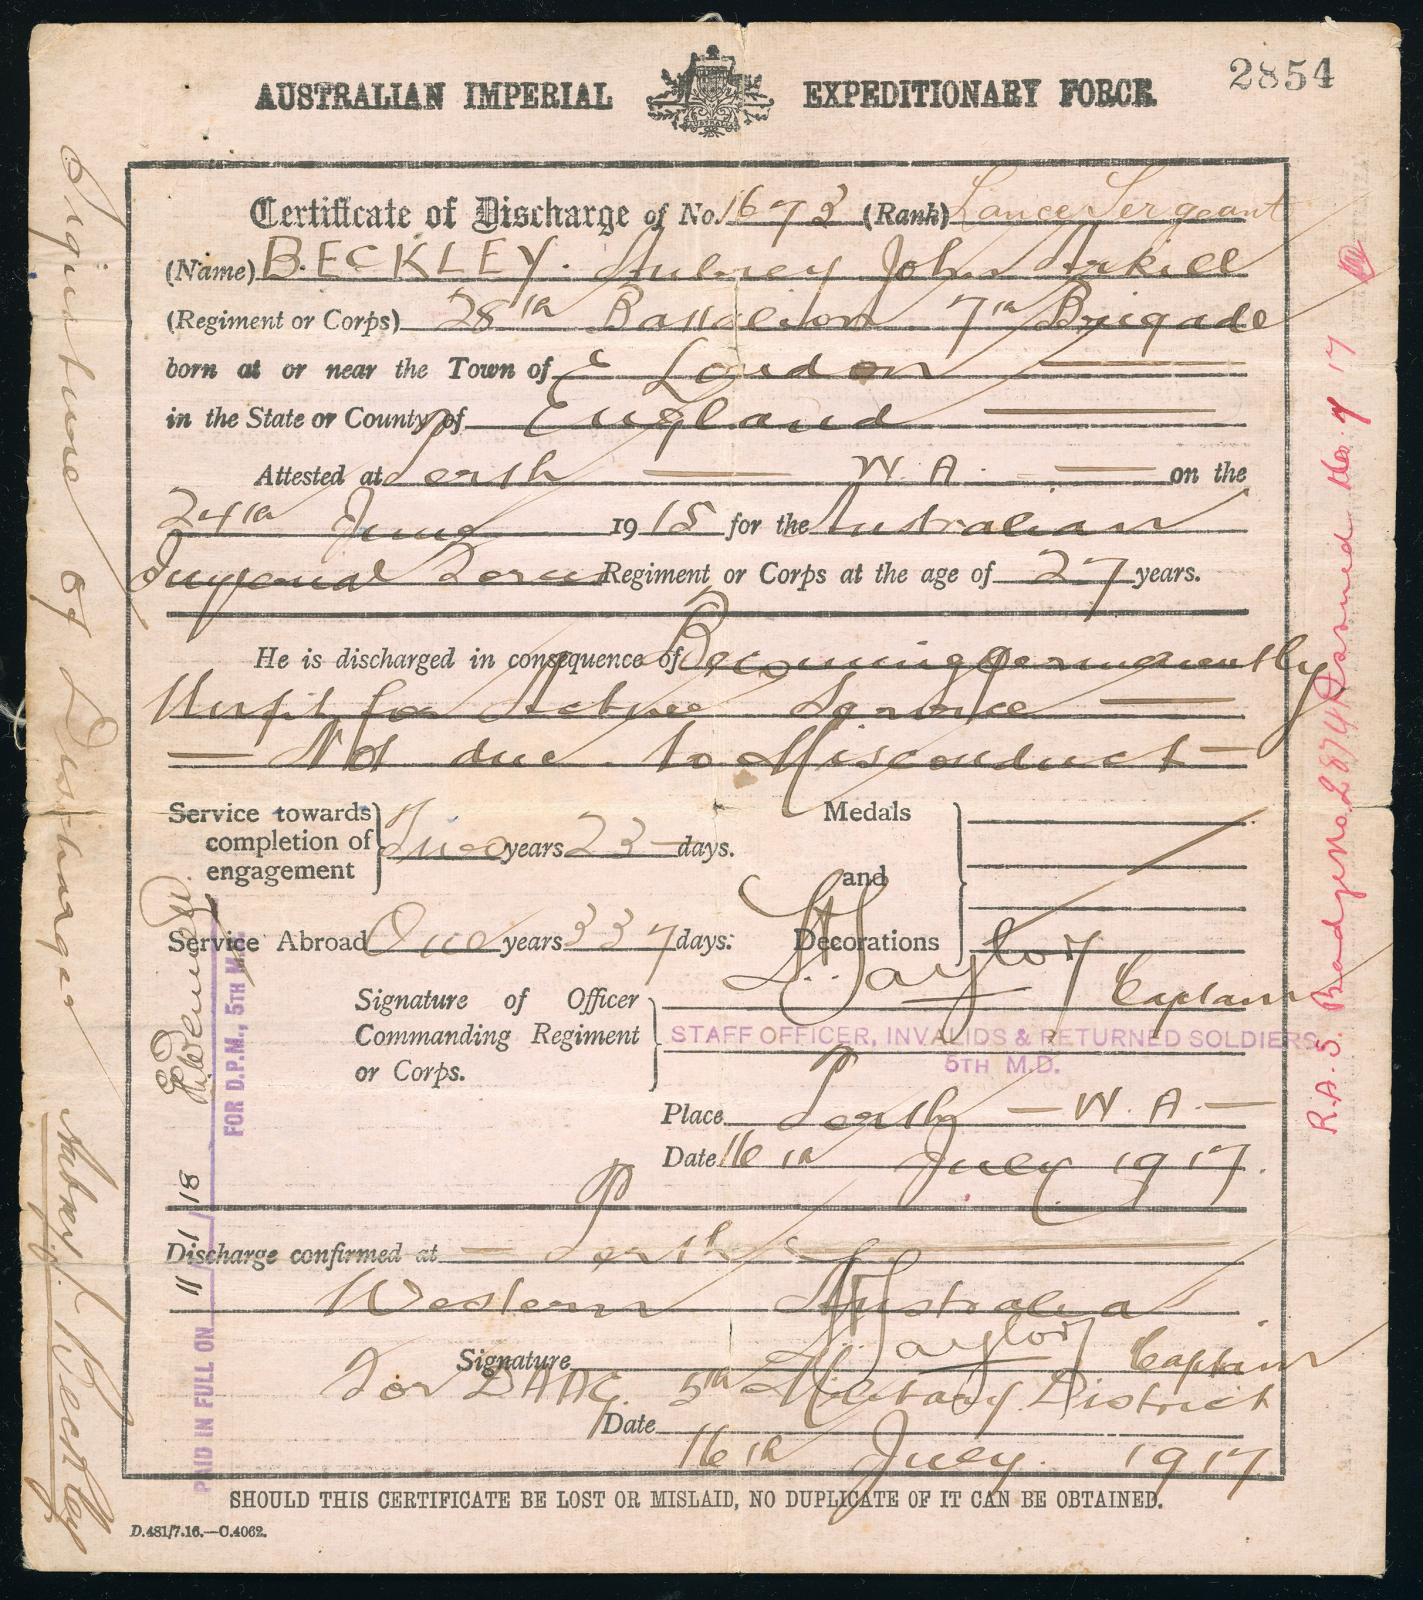 2854
AUSTRALIAN IMPERIAL EXPEDITIONARY FORCE.
AUSTRALIA
Certificate of Discharge of No. 1673 (Rank) Lance Sergeant
(Name) BECKLEY. Aubrey John Arkell
(Regiment or Corps) 28th Battalion 7th Brigade
born at or near the Town of E London
in the State or County of England
Attested at Perth W.A. on the
24th June 1915 for the Australian
Imperial Force Regiment or Corps at the age of 27 years.
He is discharged in consequence of Becoming permanently
Unfit for Active Service
Not due to Misconduct
Service towards completion of engagement } Two years 23 days.
Medals and Decorations
Service Abroad One years 337 days.
Signature of Officer Commanding Regiment or Corps. } Taylor Captain
STAFF OFFICER, INVALIDS & RETURNED SOLDIERS
5TH M.D.
Place Perth W.A.
Date 16th July 1917.
Discharge confirmed at Perth
Western Australia
Signature Taylor Captain
For DAAG. 5th Military District
Date 16th July. 1917
SHOULD THIS CERTIFICATE BE LOST OR MISLAID, NO DUPLICATE OF IT CAN BE OBTAINED.
D.481/7.16.—C.4062.
Signature of Discharger Aubrey J. Beckley
PAID IN FULL ON 11/1/18
FOR D.P.M., 5TH M.D.
R.A.S. Badge No. 2874 Issued 17